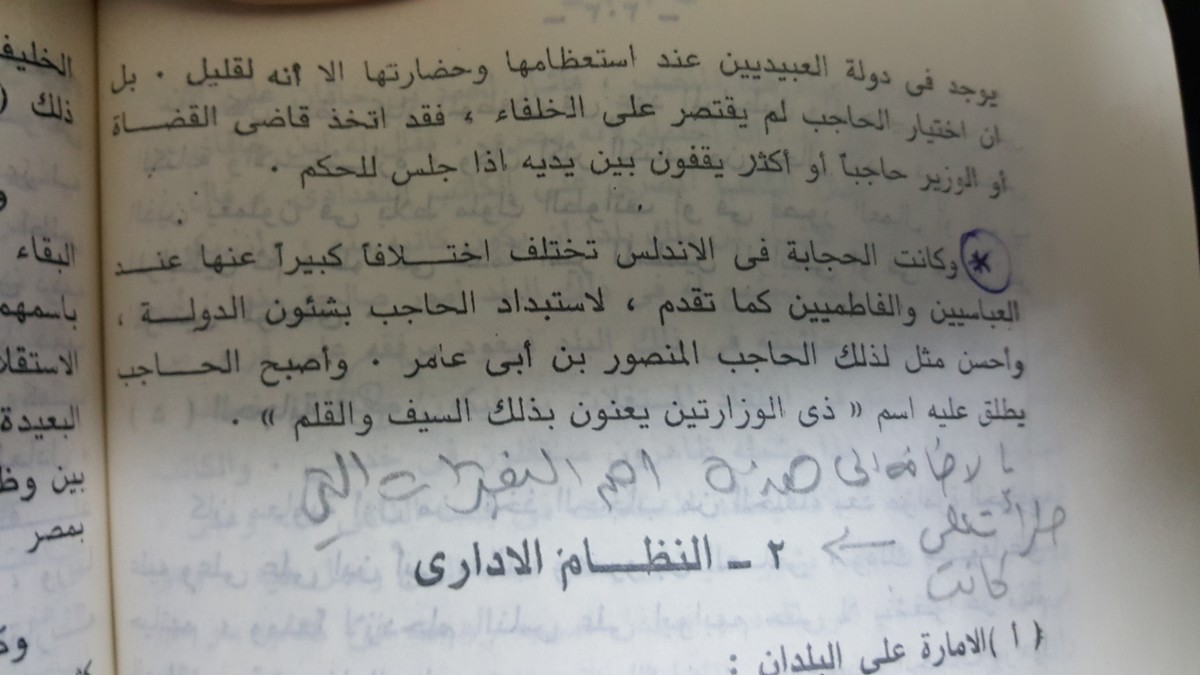 - ٢٠٢ -
يوجد فى دولة العبيديين عند استعظامها وحضارتها الا أنه لقليل . بل
ان اختيار الحاجب لم يقتصر على الخلفاء ، فقد اتخذ قاضى القضـــاة
أو الوزير حاجباً أو أكثر يقفون بين يديه اذا جلس للحكم .
* وكانت الحجابة فى الاندلس تختلف اختـــلافاً كبيراً عنها عنــد
العباسيين والفاطميين كما تقدم ، لاستبداد الحاجب بشئون الدولــة ،
وأحسن مثل لذلك الحاجب المنصور بن أبى عامر . وأصبح الحـــاجب
يطلق عليه اسم « ذى الوزارتين يعنون بذلك السيف والقلم » .
بالاضافه الى اهم التغيرات التي
طرأت على
كانت
٢ ــ النظـــام الادارى
( أ ) الامارة على البلدان :
الخليف
ذلك (
و
البقاء
باسمهم
الاستقلا
البعيدة
بين وظ
بمصر
وك